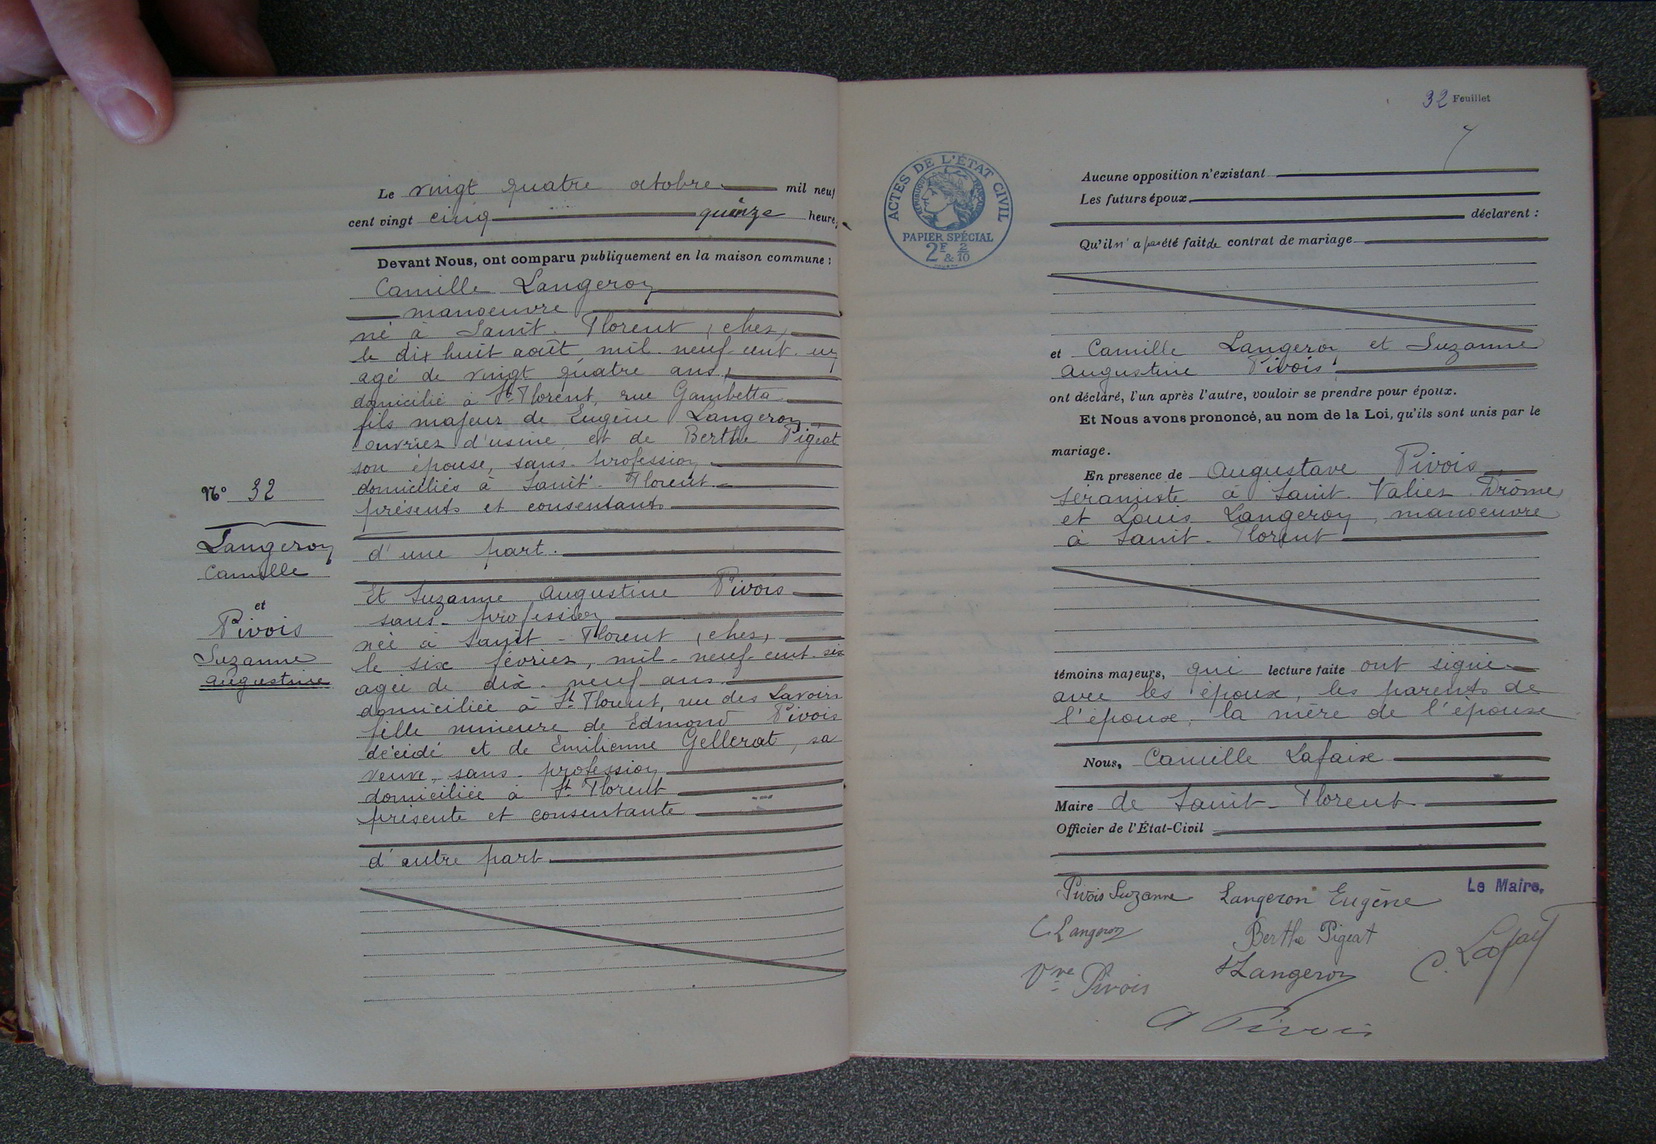 Le vingt quatre octobre mil neuf
cent vingt cinq quinze heures
Devant Nous, ont comparu publiquement en la maison commune :
Camille Langeron
manoeuvre
né à Saint-Florent (cher)
le dix huit août, mil-neuf-cent-un
agé de vingt quatre ans,
domicilié à St Florent, rue Gambetta
fils majeur de Eugène Langeron
ouvrier d'usine et de Berthe Pigeat
son épouse, sans-profession
domiciliés à Saint-Florent
présents et consentants
d'une part.
Et Suzanne Augustine Pivois
sans-profession
née à Saint-Florent (cher)
le six février, mil-neuf-cent-six
agée de dix-neuf ans
domiciliée à St Florent, rue des Lavoirs
fille mineure de Edmond Pivois
décédé et de Emilienne Gellerat, sa
veuve, sans-profession
domiciliée à St Florent
présente et consentante
d'autre part
N° 32
Langeron
Camille
et
Pivois
Suzanne
Augustine
32 Feuillet
ACTES DE L'ÉTAT CIVIL
PAPIER SPÉCIAL
2F & 2/10
Aucune opposition n'existant
Les futurs époux
déclarent :
Qu'il n'a pas été fait de contrat de mariage
et Camille Langeron et Suzanne
Augustine Pivois
ont déclaré, l'un après l'autre, vouloir se prendre pour époux.
Et Nous avons prononcé, au nom de la Loi, qu'ils sont unis par le
mariage.
En presence de Augustave Pivois
séramiste à Saint-Valier Drôme
et Louis Langeron, manoeuvre
à Saint-Florent
témoins majeurs, qui lecture faite ont signé
avec les époux, les parents de
l'époux, la mère de l'épouse
Nous, Camille Lafaix
Maire de Saint-Florent
Officier de l'État-Civil
Pivois Suzanne Langeron Eugène Le Maire,
C Langeron Berthe Pigeat
Vve Pivois Langeron C. Lafaix
A Pivois